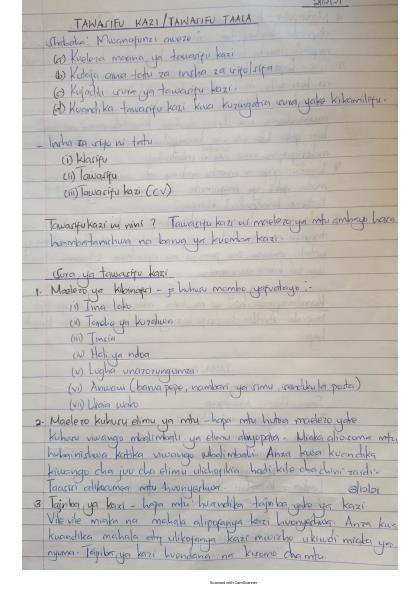 TAWASIFU KAZI / TAWASIFU TAALA
Shabaha: Mwanafunzi aweze
(a) Kueleza maana ya tawasifu kazi
(b) Kutaja aina tatu za insha za wasifu
(c) Kujadili sura ya tawasifu kazi.
(d) Kuandika tawasifu kazi kwa kuzingatia sura yake kikamilifu.
- Insha za wasifu ni tatu
(i) Wasifu
(ii) Tawasifu
(iii) Tawasifu kazi (CV)
Tawasifu kazi ni nini? Tawasifu kazi ni maelezo ya mtu ambayo
huambatanishwa na barua ya kuomba kazi.
Sura ya tawasifu kazi
1. Maelezo ya kibinafsi - huhusu mambo yafuatayo :-
(i) Jina lako
(ii) Tarehe ya kuzaliwa
(iii) Jinsia
(iv) Hali ya ndoa
(v) Lugha unazozungumza
(vi) Anwani (barua pepe, nambari ya simu, sanduku la posta)
(vii) Uraia wako
2. Maelezo kuhusu elimu ya mtu - hapa mtu hutoa maelezo yake
kuhusu viwango mbalimbali ya elimu aliyopata. Miaka aliosoma mtu
hubainishwa katika viwango mbalimbali. Anza kwa kuandika
kiwango cha juu cha elimu ulichopikia hadi kile cha chini zaidi.
Taasisi alikosomea mtu huonyeshwa.
3. Tajriba ya kazi - hapa mtu huandika tajriba yake ya kazi.
Vile vile miaka na mahala alipofanya kazi huonyeshwa. Anza kwa
kuandika mahala ulikofanya kazi mwisho ukirudi miaka ya
nyuma. Tajriba ya kazi huendana na kisomo cha mtu.
Scanned with CamScanner